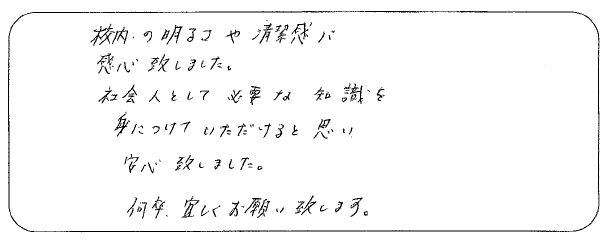 校内の明るさや清潔感に
感心致しました。
社会人として必要な知識を
身につけていただけると思い
安心致しました。
何卒、宜しくお願い致します。